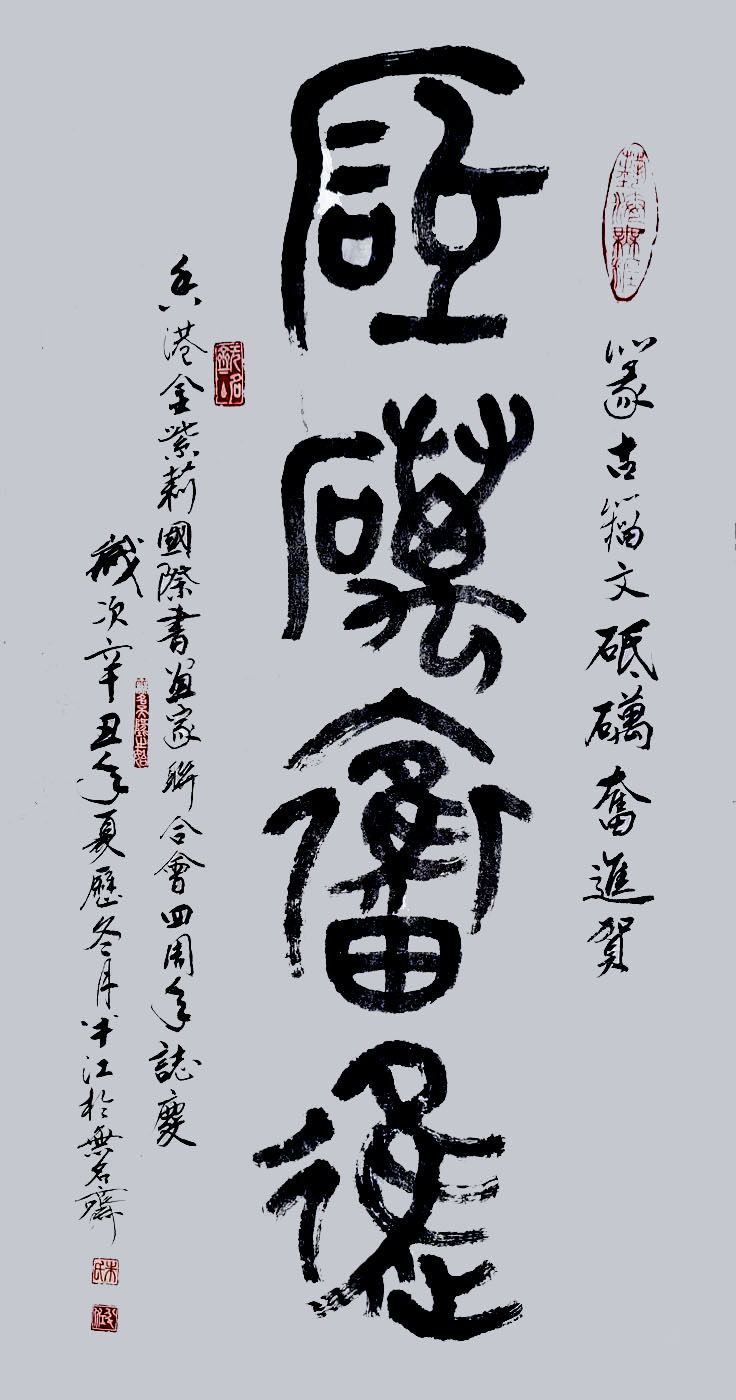 篆古籀文砥礪奮進賀
砥礪奮進
香港金紫荊國際書畫家聯合會四周年誌慶
歲次辛丑年夏歷冬月半江於無名齋